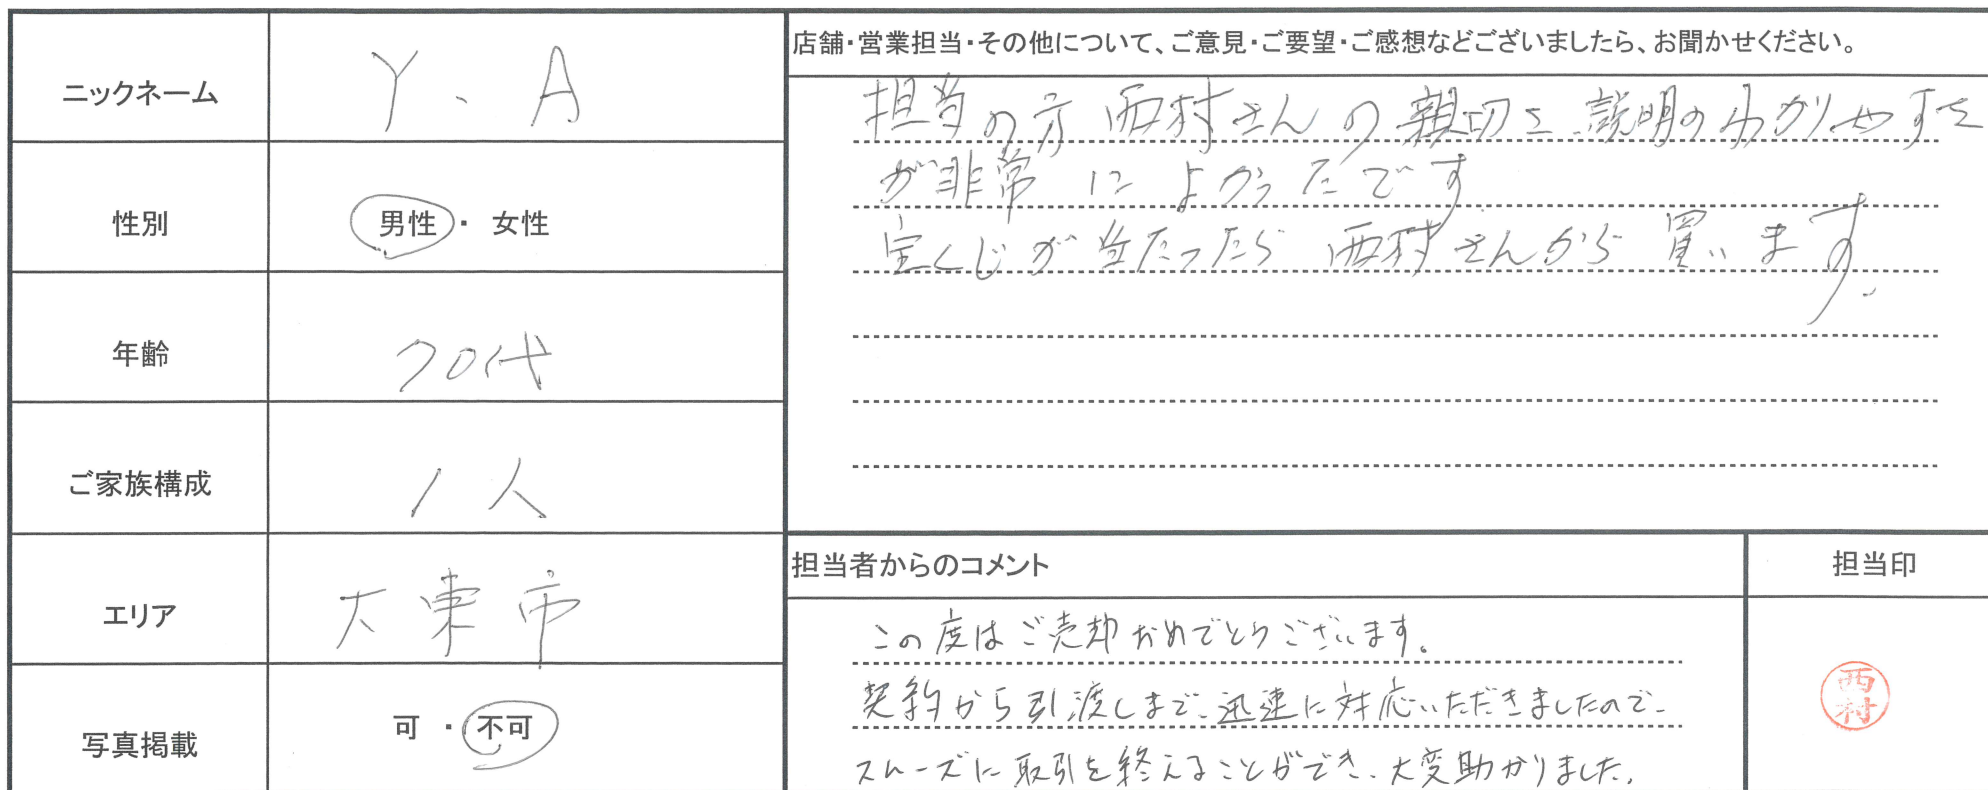 ニックネーム Y.A
性別 男性・女性
年齢 70代
ご家族構成 1人
エリア 大東市
写真掲載 可・不可
店舗・営業担当・その他について、ご意見・ご要望・ご感想などございましたら、お聞かせください。
担当の方 西村さんの親切と説明のわかりやすさ
が非常によかったです
宝くじが当たったら西村さんから買います。
担当者からのコメント
この度はご売却おめでとうございます。
契約から引渡しまで、迅速に対応いただきましたので、
スムーズに取引を終えることができ、大変助かりました。
担当印
西村